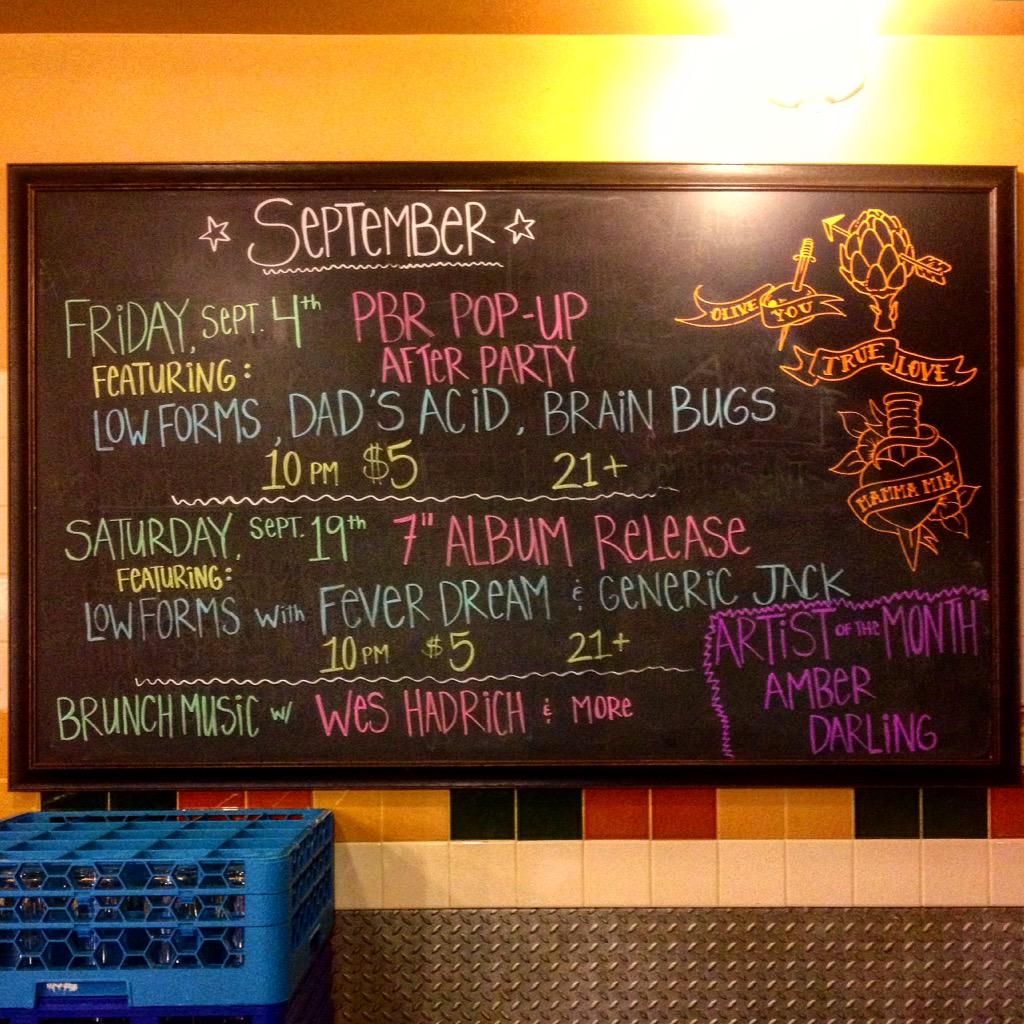 SEPTEMBER
FRIDAY, SEPT. 4th PBR POP-UP
AFTER PARTY
FEATURING:
LOW FORMS, DAD'S ACID, BRAIN BUGS
10 PM $5 21+
SATURDAY, SEPT. 19th 7" ALBUM RELEASE
FEATURING:
LOW FORMS with FEVER DREAM & GENERIC JACK
10 PM $5 21+
BRUNCH MUSIC w/ WES HADRICH & MORE
OLIVE YOU
TRUE LOVE
MAMMA MIA
ARTIST OF THE MONTH
AMBER
DARLING